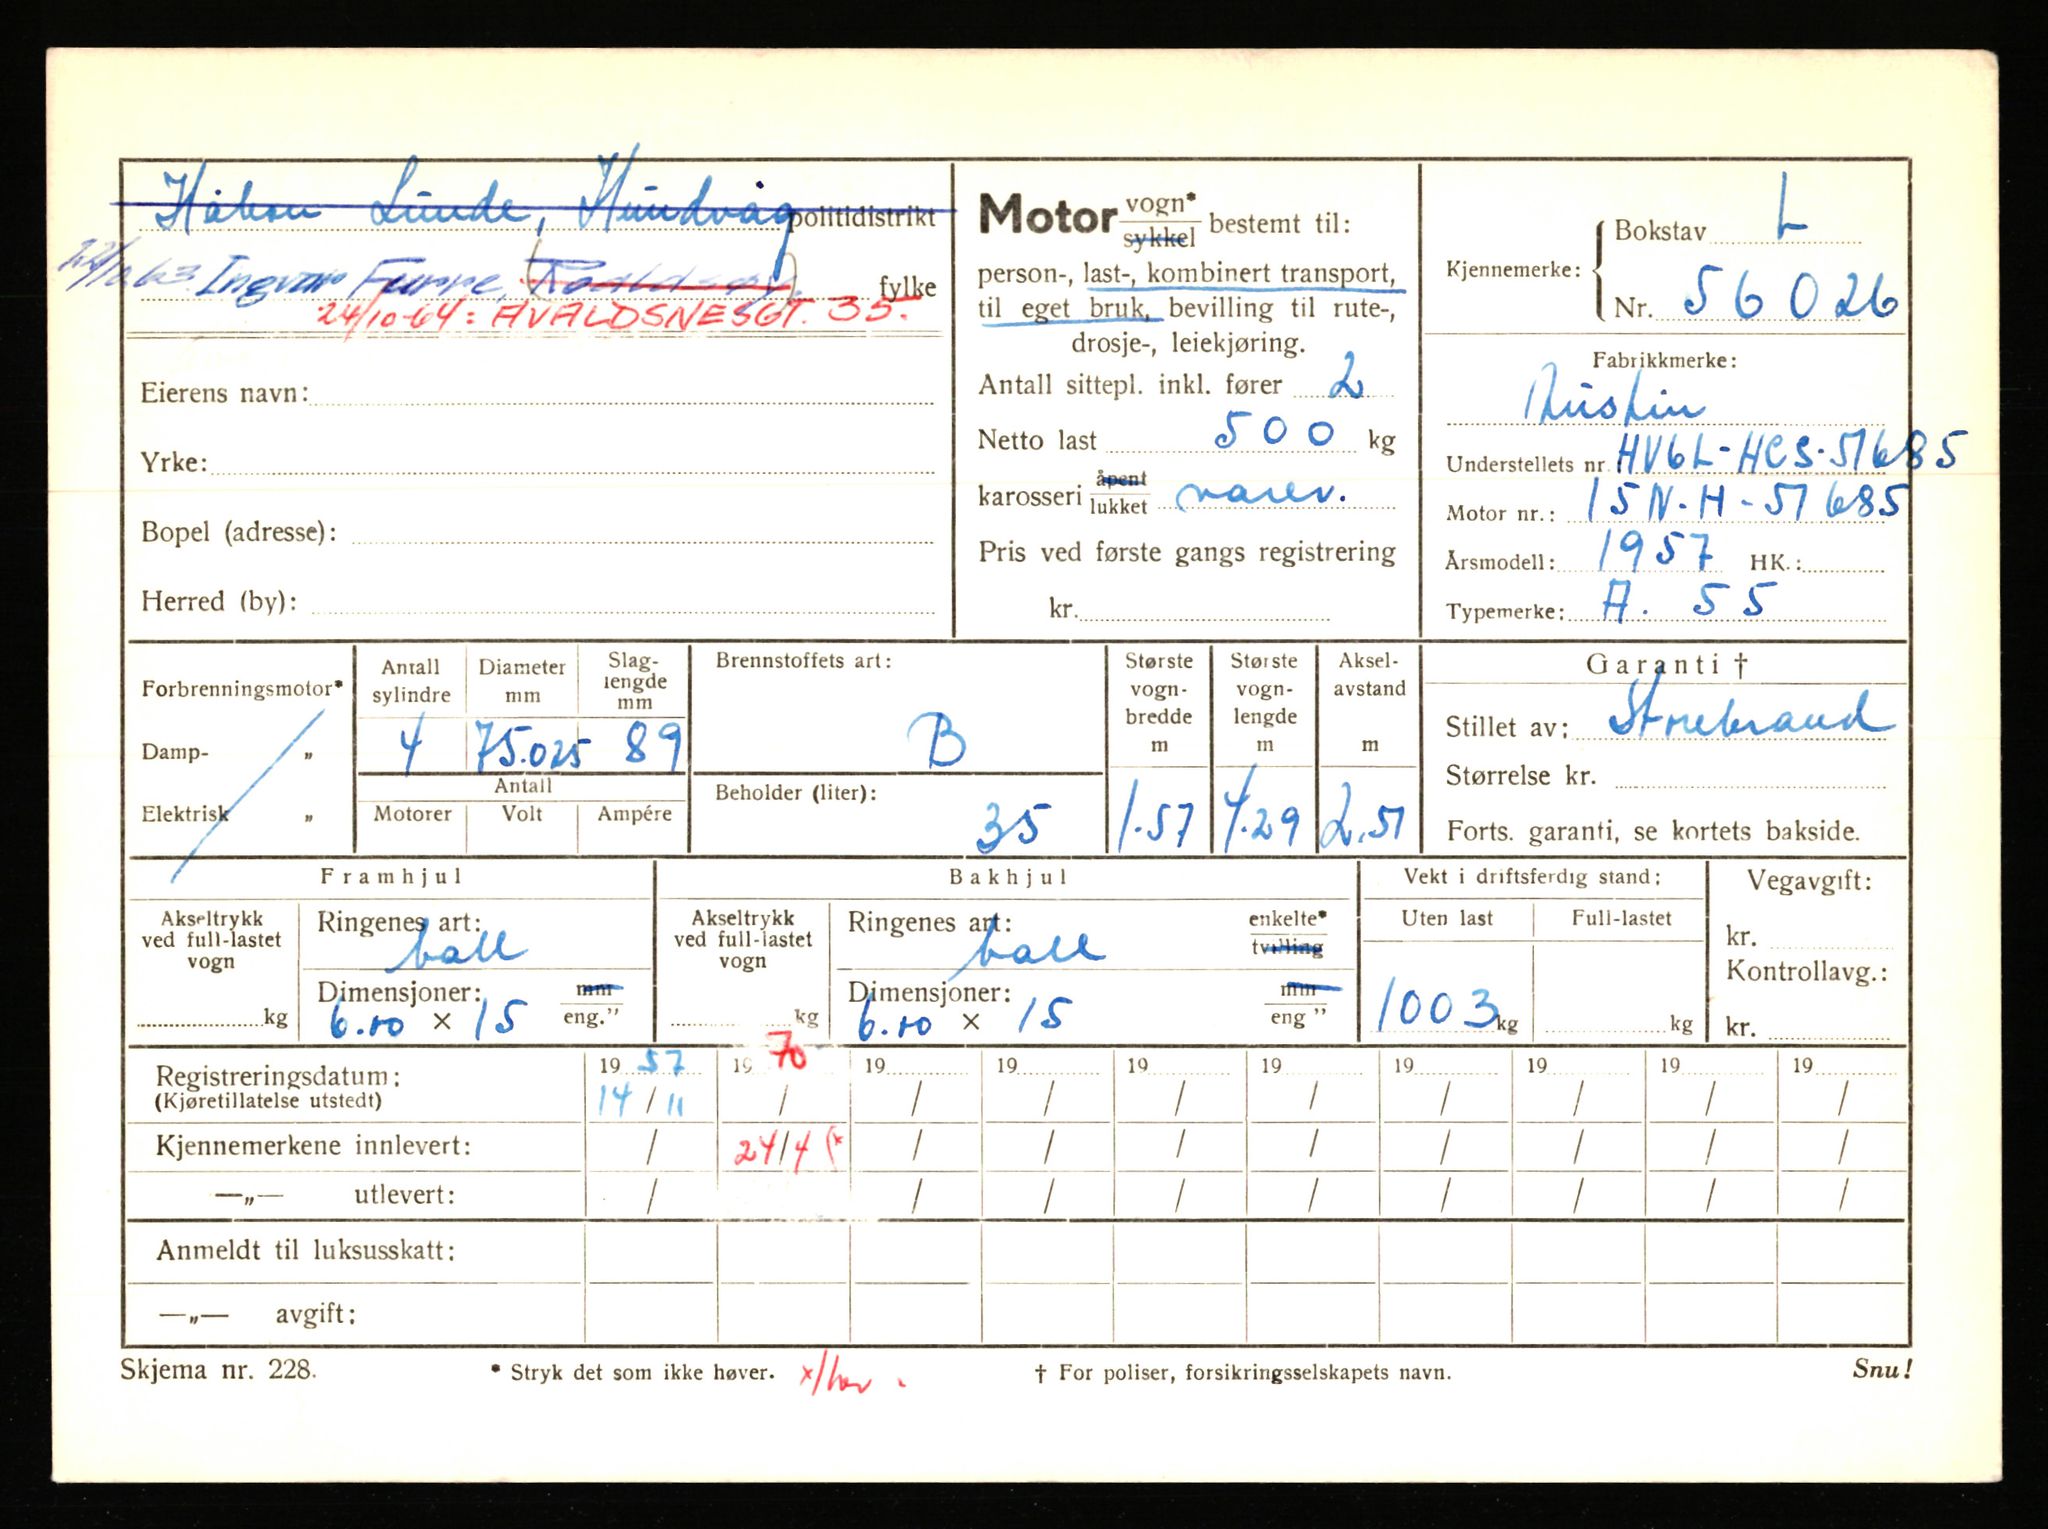 Håkon Lunde, Hundvåg politidistrikt
Ingvar Furre, fylke
24/10-64: AVALDSNESGT. 35.
Eierens navn:
Yrke:
Bopel (adresse):
Herred (by):
Motor vogn* sykkel bestemt til:
person-, last-, kombinert transport,
til eget bruk, bevilling til rute-,
drosje-, leiekjøring.
Antall sittepl. inkl. fører 2
Netto last 500 kg
karosseri åpent lukket varev.
Pris ved første gangs registrering
kr.
Kjennemerke: Bokstav L
Nr. 56026
Fabrikkmerke:
Austin
Understellets nr. HV6L-HCS-51685
Motor nr.: 15N-H-51685
Årsmodell: 1957 HK.:
Typemerke: A. 55
Forbrenningsmotor*
Damp- „
Elektrisk „
Antall sylindre 4
Diameter mm 75.025
Slaglengde mm 89
Antall
Motorer Volt Ampére
Brennstoffets art:
B
Beholder (liter):
35
Største vogn-bredde m 1.57
Største vogn-lengde m 4.29
Aksel-avstand m 2.51
Garanti †
Stillet av: Storebrand
Størrelse kr.
Forts. garanti, se kortets bakside.
Framhjul
Akseltrykk ved full-lastet vogn
kg
Ringenes art:
ball
Dimensjoner: mm
6.40 × 15 eng."
Bakhjul
Akseltrykk ved full-lastet vogn
kg
Ringenes art: enkelte*
ball tvilling
Dimensjoner: mm
6.40 × 15 eng "
Vekt i driftsferdig stand:
Uten last Full-lastet
1003 kg kg
Vegavgift:
kr.
Kontrollavg.:
kr.
Registreringsdatum: 19 57 19 70 19 19 19 19 19 19 19 19
(Kjøretillatelse utstedt) 14/11 / / / / / / / / /
Kjennemerkene innlevert: / 24/4 (x / / / / / / / /
—„— utlevert: / / / / / / / / /
Anmeldt til luksusskatt:
—„— avgift:
Skjema nr. 228. * Stryk det som ikke høver. † For poliser, forsikringsselskapets navn. Snu!